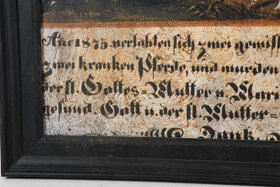 An̄o 1875 verlobten sich zwey gewisse
zwei kranken Pferde, und wurden
der st. Gottes-Mutter u Mari
gesund Gott u. der st. Mutter
Dank